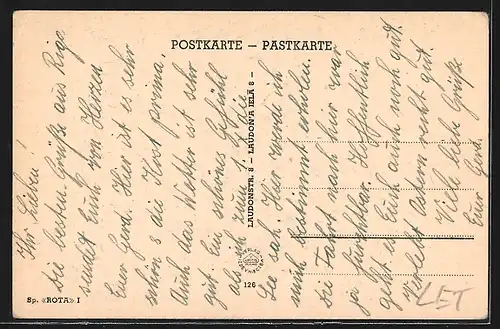 POSTKARTE — PASTKARTE
Ihr Lieben!
Die besten Grüße aus Riga
sendet Euch von Herzen
Euer Gerd. Hier ist es sehr
schön & die Kost prima.
Auch das Wetter ist sehr
gut. Ein schönes Gefühl
als ich zum 1. x die
See sah. Hier werde ich
mich bestimmt erholen.
Die Fahrt nach hier war
ja furchtbar. Hoffentlich
geht es Euch auch noch gut.
Verlebt Ostern recht gut.
Viele liebe Grüße
Euer Gerd.
LAUDONSTR. 8 — LAUDON'A IELĀ 8 —
126
Sp. «ROTA» I
LET